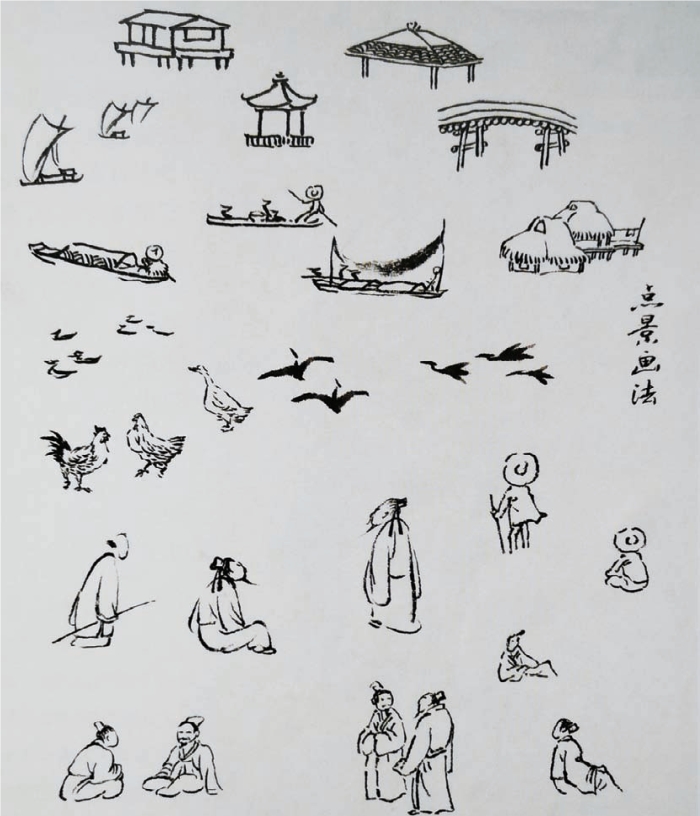 点景画法